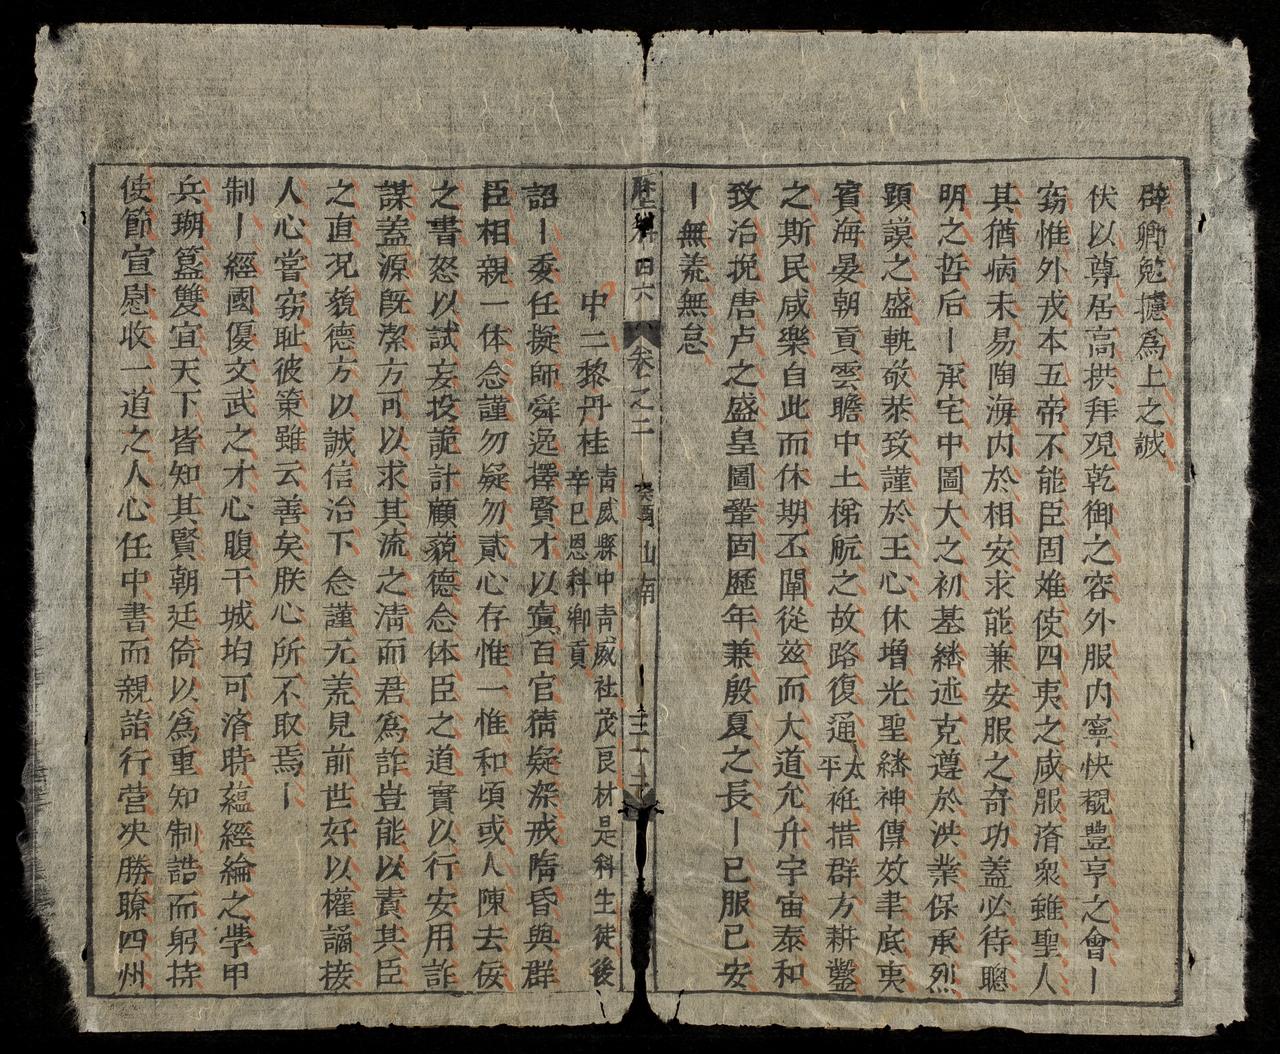 辟卿勉攄為上之誠
伏以尊居高拱拜覌乾御之容外服内寧快覩豊亨之會ー
窃惟外戎本五帝不能臣固难使四夷之咸服濟衆雖聖人
其猶病未易陶海内於相安求能兼安服之奇功蓋必待聰
明之哲后ー承宅中圖大之初基繙述克遵於洪業保承烈
顕謨之盛軌敬恭致謹於王心休增光聖繙神傳效芉底夷
賓海晏朝貢雲瞻中土梯航之故路復通太平袵措群方耕鑿
之斯民咸樂自此而休期丕闡從兹而大道允升宇宙泰和
致治挽唐卢之盛皇圖鞏固歷年兼殷夏之長ー已服已安
ー無荒無怠
歴科四六 卷之二 癸酉山南 三十二
中二黎丹桂 青威縣中青威社茂良材是科生徒後辛巳恩科鄉貢
詔ー委任擬師舜逸擇賢才以寘百官猜疑深戒隋昏與群
臣相親一体念謹勿疑勿貳心存惟一惟和頃或人陳去佞
之書怒以試妄投詭計顧藐德忝体臣之道實以行安用詐
謀蓋源既潔方可以求其流之清而君為詐豈能以責其臣
之直况藐德方以誠信治下忝謹无荒見前世好以權譎接
人心嘗窃耻彼策雖云善矣朕心所不取焉ー
制ー經國優文武之才心腹干城均可濟時蘊經綸之學甲
兵瑚簋雙宜天下皆知其賢朝廷倚以為重知制誥而躬持
使節宣慰收一道之人心任中書而親詣行营决勝瞭四州